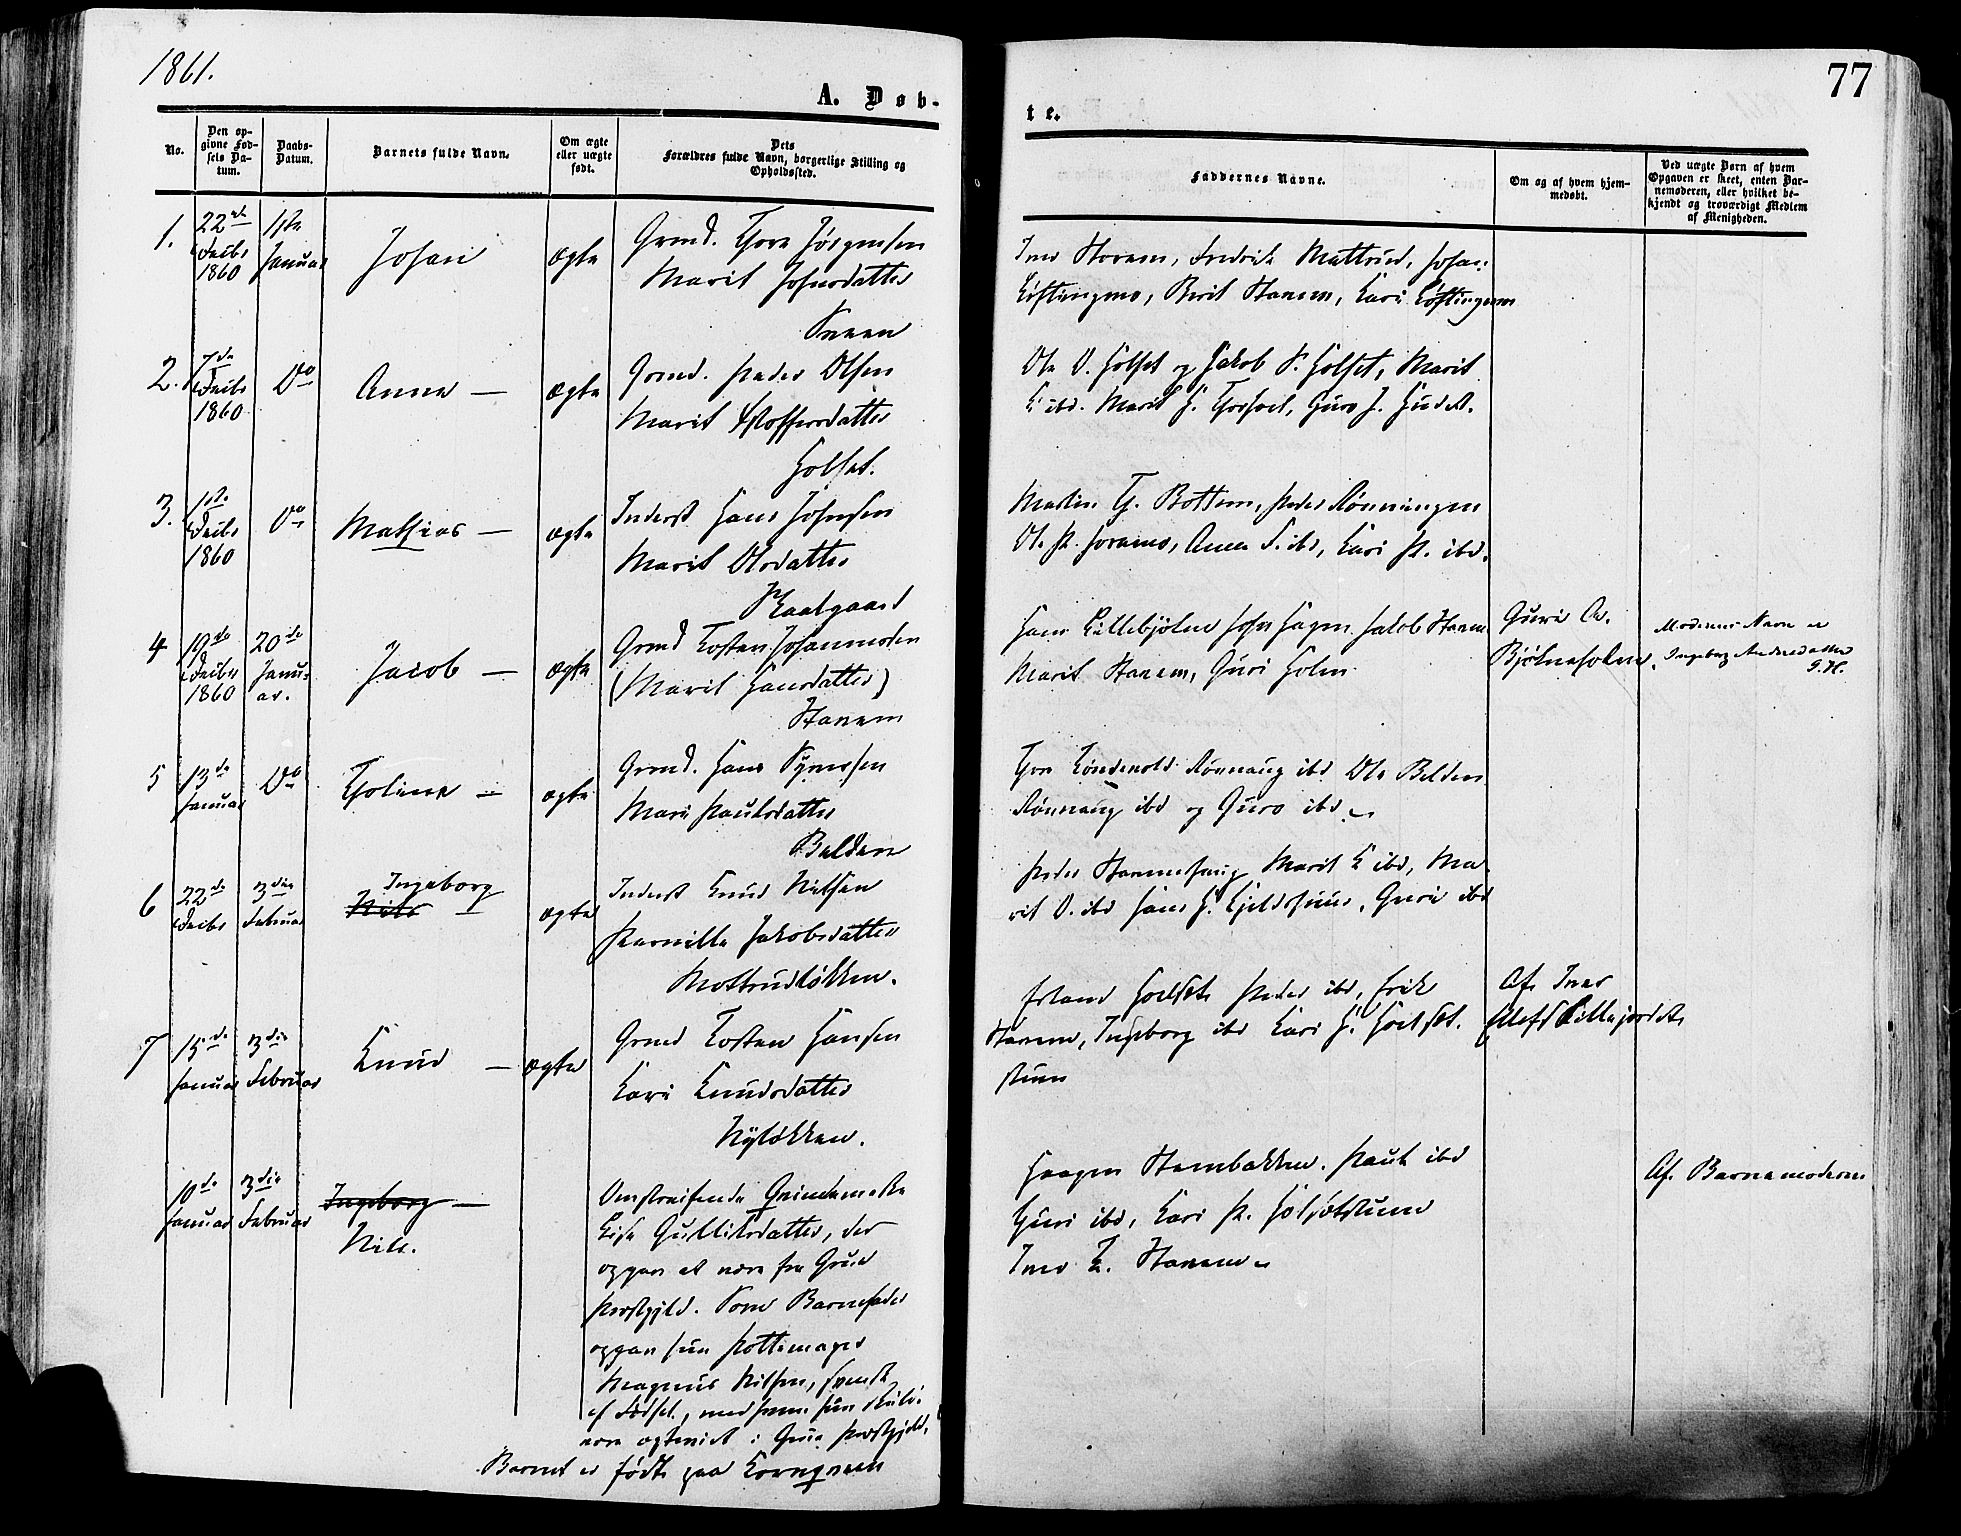 1861.
77
A. Døb-
te.
No.
Den op-
givne Fød-
sels Da-
tum.
Daabs-
Datum.
Barnets fulde Navn.
Om ægte
eller uægte
født.
Dets
Forældres fulde Navn, borgerlige Stilling og
Opholdssted.
Faddernes Navne.
Om og af hvem hjem-
medøbt.
Ved uægte Børn af hvem
Opgaven er skeet, enten Bar-
nemoderen, eller hvilket be-
kjendt og troværdigt Medlem
af Menigheden.
1.
22de
Decbr
1860
1ste
Januar
Johan
ægte
Grmd. Thore Jørgensen
Marit Johnsdatter
Sneen
Iver Horrem, Fredrik Mattrud, Johan
Løftingmo, Berit Hanem, Kari Løftingmo
2.
7de
Decbr
1860
Do
Anne —
ægte
Grmd. Peder Olsen
Marit Kstoffersdatter
Holset.
Ole O. Holset og Jakob S. Holset, Marit
K. ibd. Marit H. Thorset, Guro J.
3.
1ste
Decbr
1860
Do
Mathias —
ægte
Inderst Hans Johnsen
Marit Olsdatter
Kaalgaard
Martin Th. Bottem, Peder Rønningen
Ole P. Horremo, Anne S. ibd, Kari P. ibd.
4
19de
Decbr
1860
20de
Janu-
ar.
Jacob —
ægte
Grmd Torsten Johannesen
(Marit Hansdatter)
Hanem
Hans Lillekjølen John Hagen Jakob Hanem
Marit Hanem, Guri Holm
Guri A.
Bjørnaholm.
Moderens Navn er
Ingeborg Andersdatter
S.H.
5
13de
Januar
Do
Tholine —
ægte
Grmd. Hans Simensen
Mari Paulsdatter
Belden
Thore Rønnaug ibd Ole Belden
Rønnaug ibd og Guro ibd.
6
22de
Decbr
3die
Februar
Ingeborg
Nils —
ægte
Inderst Knud Nilsen
Pernille Jakobsdatter
Mottrudløkken.
Peder Hammerhaug Marit K ibd, Ma-
rit O. ibd Hans H. Guri ibd
7
15de
Januar
3die
Februar
Knud —
ægte
Grmd Torsten Hansen
Kari Knudsdatter
Nyløkken.
Erland Hoelset Peder ibd, Erik
Hanem, Ingeborg ibd Kari H. Hoelset-
stuen
Af Iver
Lillejordet
10de
Januar
3die
Februar
Ingeborg —
Nils.
Omstreifende Qvindemske
Lise Gulliksdatter, der
opgav at være fra Grue
Prestgjeld. Som Barnefader
opgav hun Pottemager
Magnus Nilsen, svensk
af Fødsel, med hvem hun skulde
være ægteviet i Grue Prestgjeld.
Barnet er født paa Kornqvaen
Haagen Hembakken. Paul ibd
Guri ibd, Kari P. Høljotstuen
Iver L. Hanem
Af Barnemoderen